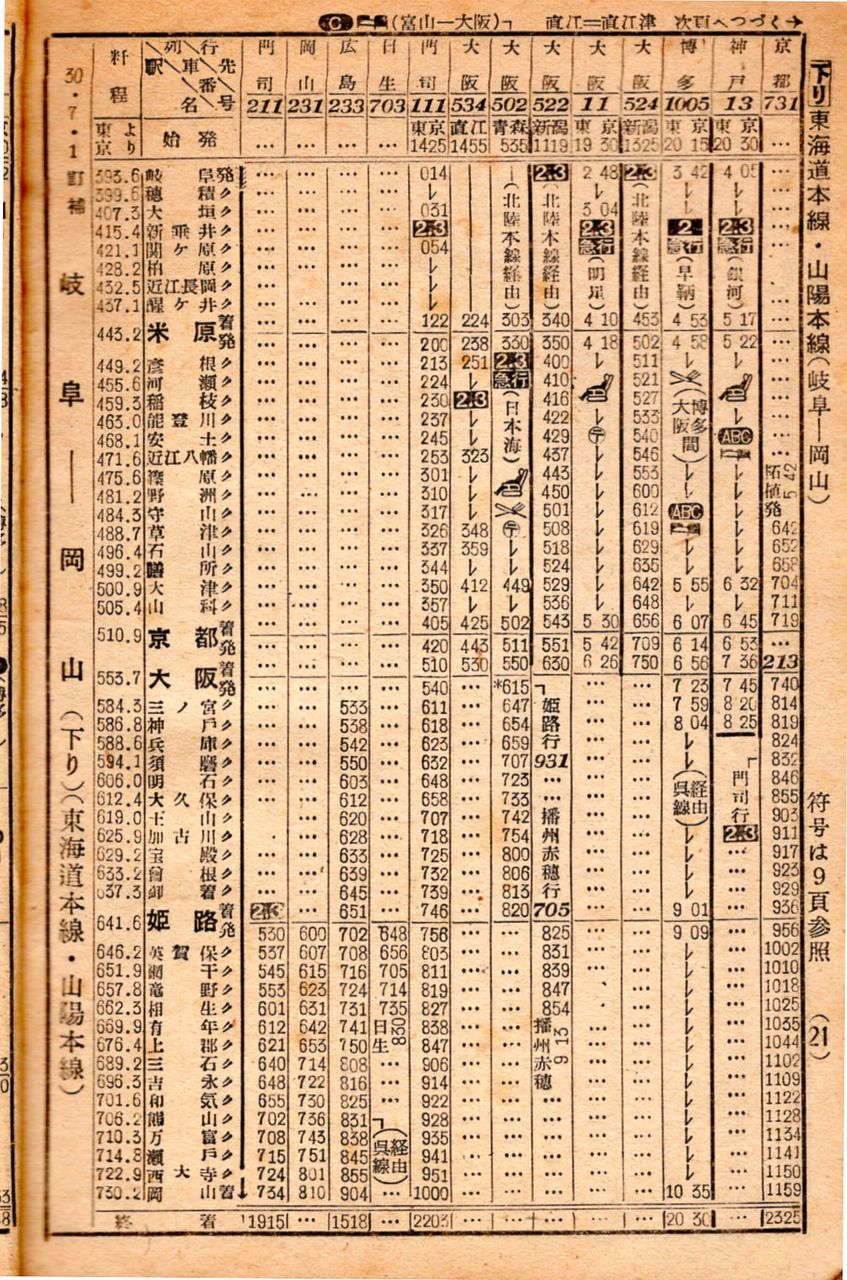 C (富山—大阪)┐ 直江=直江津 次頁へつづく→
下り 東海道本線・山陽本線(岐阜——岡山) 符号は9頁参照 (21)
30・7・1訂補 岐阜——岡山(下り)(東海道本線・山陽本線)
料程 列車番号 行先 駅名 門司 岡山 広島 日生 門司 大阪 大阪 大阪 大阪 大阪 博多 神戸 京都
211 231 233 703 111 534 502 522 11 524 1005 13 731
東京より 始発 … … … … 東京1425 直江1455 青森535 新潟1119 東京19 30 新潟1325 東京20 15 東京20 30 …
393.6 岐阜発 … … … … 014 … 2.3 2 48 2.3 3 42 4 05 …
399.6 穂積〃 … … … … ↓
407.3 大垣〃 … … … … 031 3 04 ↓ ↓ …
415.4 新垂井〃 … … … … 2.3 2.3 2 2.3 …
421.1 関ケ原〃 … … … … 054 急行 急行 急行 …
428.2 柏原〃 … … … … ↓
432.5 近江長岡〃 … … … … ↓
437.1 醒ケ井〃 … … … … ↓
(北陸本線経由) (北陸本線経由) (明星) (北陸本線経由) (早鞆) (銀河)
443.2 米原着 … … … … 122 224 303 340 4 10 453 4 53 5 17 …
発 … … … … 200 238 330 350 4 18 502 4 58 5 22 …
449.2 彦根〃 … … … … 213 251 2.3 400 ↓ 511 ↓ ↓ …
455.6 河瀬〃 … … … … 224 ↓ 急行 410 521 …
459.3 稲枝〃 … … … … 230 2.3 416 527 …
463.0 能登川〃 … … … … 237 ↓ 422 ↓ 533 ↓ …
468.1 安土〃 … … … … 245 ↓ 429 〒 540 ABC …
471.6 近江八幡〃 … … … … 253 323 437 ↓ 546 …
(日本海) (大阪博多間)
475.6 篠原〃 … … … … 301 ↓ 443 ↓ 553 ↓ 柘植発 5 42
481.2 野洲〃 … … … … 310 ↓ 450 ↓ 600 ↓ ↓
484.3 守山〃 … … … … 317 ↓ 501 ↓ 612 ABC ↓
488.7 草津〃 … … … … 326 348 〒 508 ↓ 619 ↓ 642
496.4 石山〃 … … … … 337 359 ↓ 518 ↓ 629 ↓ ↓ 652
499.2 膳所〃 … … … … 344 ↓ ↓ 524 ↓ 635 ↓ ↓ 658
500.9 大津〃 … … … … 350 412 449 529 ↓ 642 5 55 6 32 704
505.4 山科〃 … … … … 357 ↓ ↓ 536 ↓ 648 ↓ ↓ 711
510.9 京都着 … … … … 405 425 502 543 5 30 656 6 07 6 45 719
発 … … … … 420 443 511 551 5 42 709 6 14 6 53 …
553.7 大阪着 … … … … 510 530 550 630 6 26 750 6 56 7 36 213
発 … … … … 540 … *615 ┐ … … 7 23 7 45 740
584.3 三ノ宮〃 … … 533 … 611 … 647 … … 7 59 8 20 814
586.8 神戸〃 … … 538 … 618 … 654 … … 8 04 8 25 819
588.6 兵庫〃 … … 542 … 623 … 659 … … ↓ 824
594.1 須磨〃 … … 550 … 632 … 707 931 … … ↓ ┌ 832
606.0 明石〃 … … 603 … 648 … 723 … … … 846
612.4 大久保〃 … … 612 … 658 … 733 … … … 855
619.0 土山〃 … … 620 … 707 … 742 … … 903
625.9 加古川〃 … … 628 … 718 … 754 … … 2.3 911
姫路行 播州赤穂行 (呉線経由) 門司行
629.2 宝殿〃 … … 633 … 725 … 800 … … ↓ … 917
633.2 曾根〃 … … 639 … 732 … 806 … … ↓ … 923
637.3 御着〃 … … 645 … 739 … 813 … … ↓ … 929
641.6 姫路着 2.3 … 651 … 746 … 820 705 … … 9 01 … 936
発 530 600 702 648 756 … … 825 … … 9 09 … 956
646.2 英賀保〃 537 607 708 656 803 … … 831 … … ↓ … 1002
651.9 網干〃 545 615 716 705 811 … … 839 … … ↓ … 1010
657.8 竜野〃 553 623 724 714 819 … … 847 … … ↓ … 1018
662.3 相生〃 601 631 731 735 827 … … 854 … … ↓ … 1025
669.9 有年〃 612 642 741 日生 808 838 … … 播州赤穂 9 13 … … ↓ … 1035
676.4 上郡〃 621 653 750 847 … … … … ↓ … 1044
689.2 三石〃 640 714 808 … 906 … … … … ↓ … 1102
696.3 吉永〃 648 722 816 … 914 … … … … ↓ … 1109
701.6 和気〃 655 730 825 … 922 … … … … … ↓ … 1122
706.2 熊山〃 702 736 831 ┐ 928 … … … … … ↓ … 1128
710.3 万富〃 708 743 838 935 … … … … … ↓ … 1134
714.8 瀬戸〃 715 751 845 941 … … … … … ↓ … 1141
722.9 西大寺〃 724 801 855 951 … … … … … ↓ … 1150
(呉線経由)
730.2 岡山着 734 810 904 … 1000 … … … … … 10 35 … 1159
終着 1915 … 1518 … 2203 … … … … … 20 30 … 2325